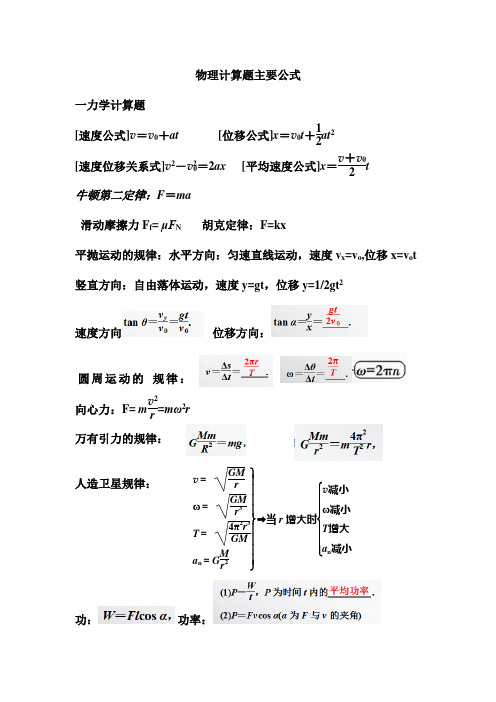 物理计算题主要公式
一力学计算题
[速度公式]v＝v₀＋at [位移公式]x＝v₀t＋1/2at²
[速度位移关系式]v²－v₀²＝2ax [平均速度公式]x＝(v＋v₀)/2 t
牛顿第二定律：F＝ma
滑动摩擦力 Ff= μFN 胡克定律：F=kx
平抛运动的规律：水平方向：匀速直线运动，速度 vx=vo,位移 x=vot
竖直方向：自由落体运动，速度 y=gt，位移 y=1/2gt²
速度方向 tan θ＝vy/v₀＝gt/v₀. 位移方向： tan α＝y/x＝gt/2v₀.
圆周运动的 规律： v＝Δs/Δt＝2πr/T. ω＝Δθ/Δt＝2π/T. ω=2πn
向心力：F= m v²/r=mω²r
万有引力的规律： G Mm/R²＝mg， G Mm/r²＝m 4π²/T² r，
人造卫星规律：
v＝√(GM/r)
ω＝√(GM/r³)
T＝√(4π²r³/GM)
an＝G M/r²
⇒当 r 增大时
v减小
ω减小
T增大
an减小
功： W＝Flcos α， 功率：
(1)P＝W/t，P 为时间 t 内的平均功率.
(2)P＝Fvcos α(α 为 F 与 v 的夹角)